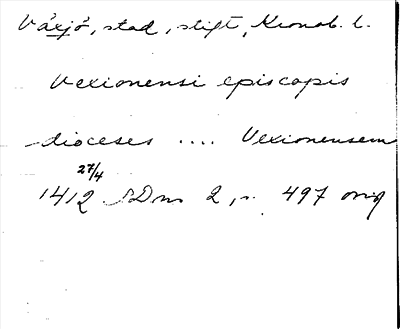 Växjö, stad, stift, Kronob. l.
Vexionensi episcopis
dioceses .... Vexionensem
27/4
1412 SDns 2, s. 497 orig